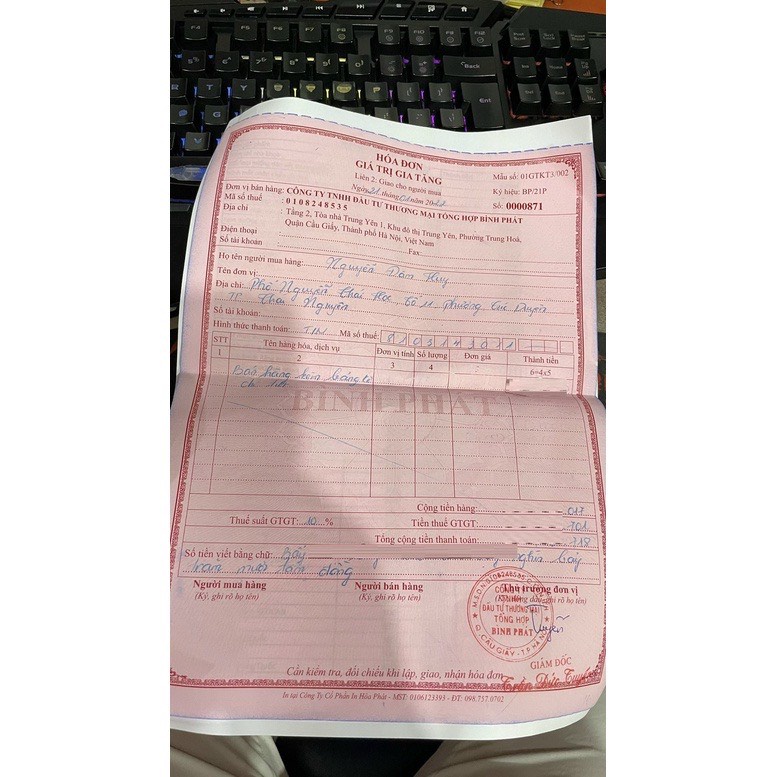 HÓA ĐƠN
GIÁ TRỊ GIA TĂNG
Liên 2: Giao cho người mua
Ngày 21 tháng 01 năm 2022
Mẫu số: 01GTKT3/002
Ký hiệu: BP/21P
Số: 0000871
Đơn vị bán hàng: CÔNG TY TNHH ĐẦU TƯ THƯƠNG MẠI TỔNG HỢP BÌNH PHÁT
Mã số thuế : 0108248535
Địa chỉ : Tầng 2, Tòa nhà Trung Yên 1, Khu đô thị Trung Yên, Phường Trung Hoà,
Quận Cầu Giấy, Thành phố Hà Nội, Việt Nam
Điện thoại : Fax:
Số tài khoản :
Họ tên người mua hàng: Nguyễn Văn Huy
Tên đơn vị:
Địa chỉ: Phố Nguyễn Thái Học, tổ 11, phường
TP Thái Nguyên
Số tài khoản:
Hình thức thanh toán: TM Mã số thuế:
STT Tên hàng hóa, dịch vụ Đơn vị tính Số lượng Đơn giá Thành tiền
1 2 3 4 6=4x5
Bán hàng kèm bảng kê
chi tiết
BÌNH PHÁT
Cộng tiền hàng: 017
Thuế suất GTGT: 10 % Tiền thuế GTGT: 701
Tổng cộng tiền thanh toán: 718
Số tiền viết bằng chữ: Bảy nghìn bảy
trăm mười tám đồng
Người mua hàng Người bán hàng Thủ trưởng đơn vị
(Ký, ghi rõ họ tên) (Ký, ghi rõ họ tên) (Ký, đóng dấu, ghi rõ họ tên)
M.S.D.N: 0108248535
CÔNG TY
TNHH
ĐẦU TƯ THƯƠNG MẠI
TỔNG HỢP
BÌNH PHÁT
Q. CẦU GIẤY - T.P HÀ NỘI
GIÁM ĐỐC
Trần Đức Tuyễn
Cần kiểm tra, đối chiếu khi lập, giao, nhận hóa đơn
In tại Công Ty Cổ Phần In Hòa Phát - MST: 0106123393 - ĐT: 098.757.0702